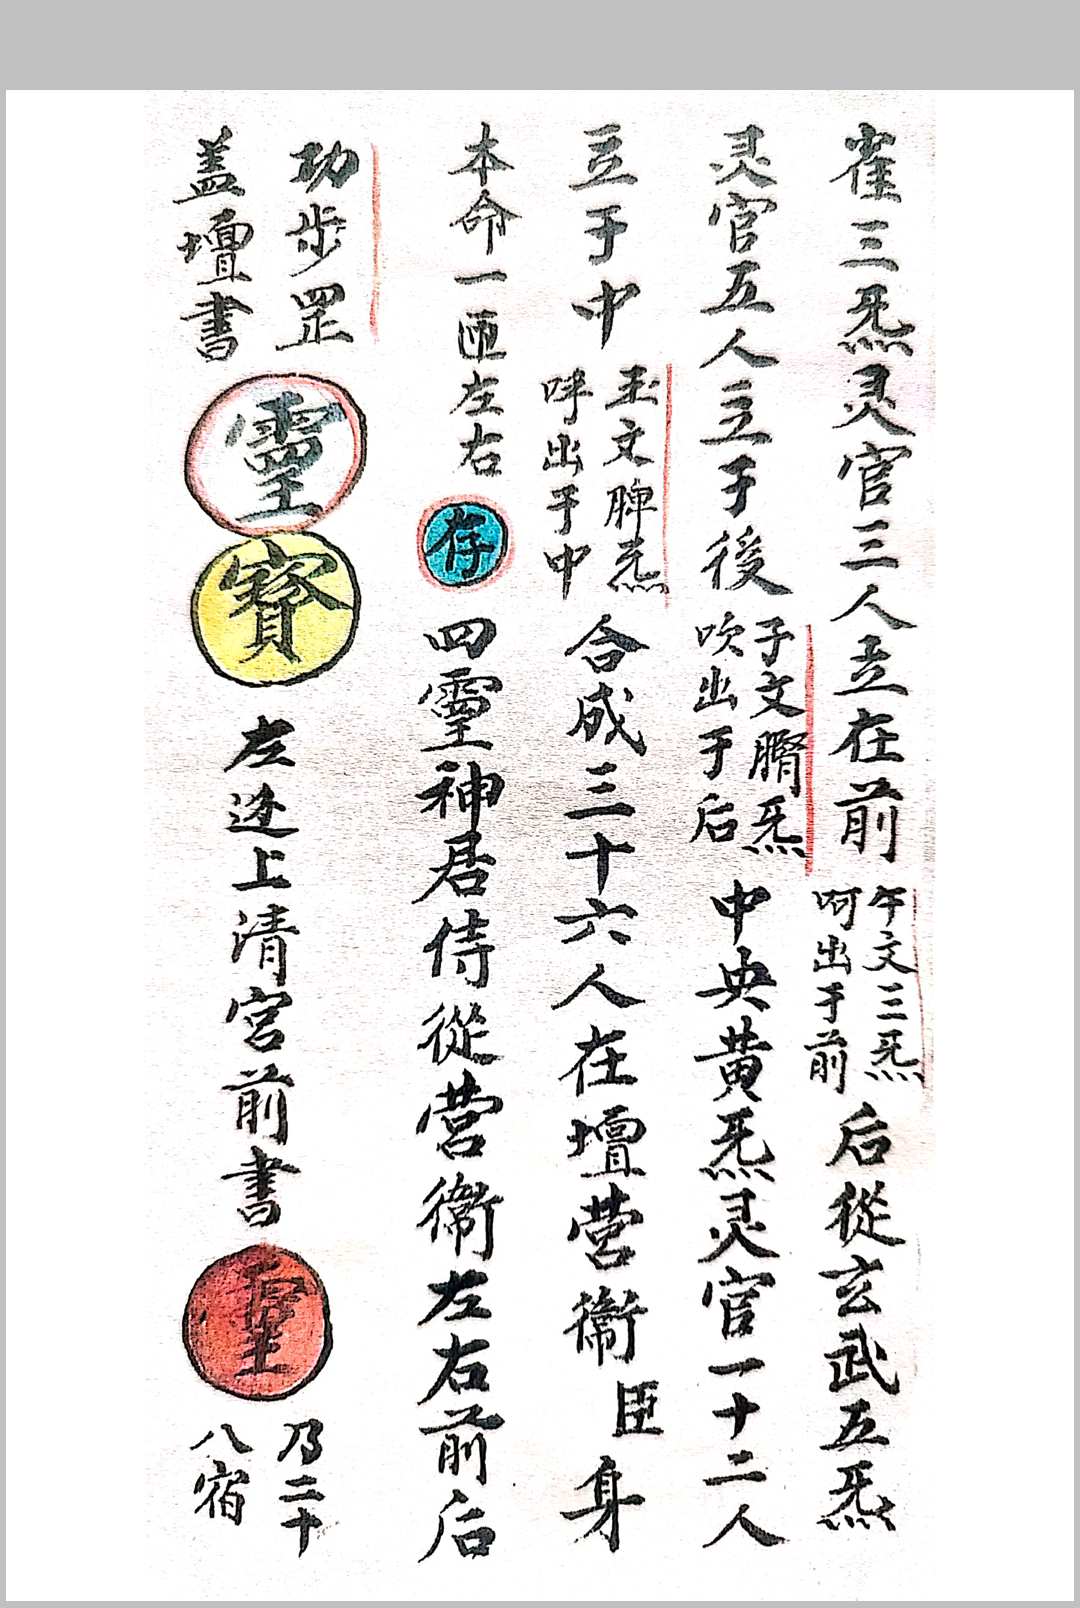 雀三炁灵官三人立在前
午文三炁
呵出于前
后從玄武五炁
灵官五人立于後
子文腎炁
吹出于后
中央黄炁灵官一十二人
立于中
玉文脾炁
呼出于中
合成三十六人在壇营衛臣身
本命一匝左右存四靈神君侍從营衛左右前后
功步罡
盖壇書
靈寳
左逆上清宮前書
靈
乃二十
八宿